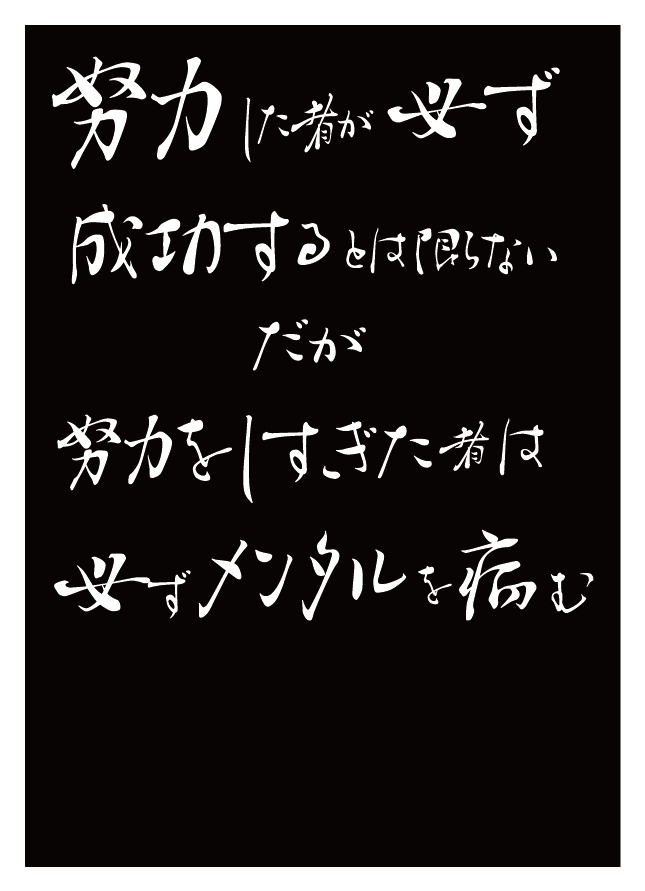 努力した者が必ず
成功するとは限らない
だが
努力をしすぎた者は
必ずメンタルを病む